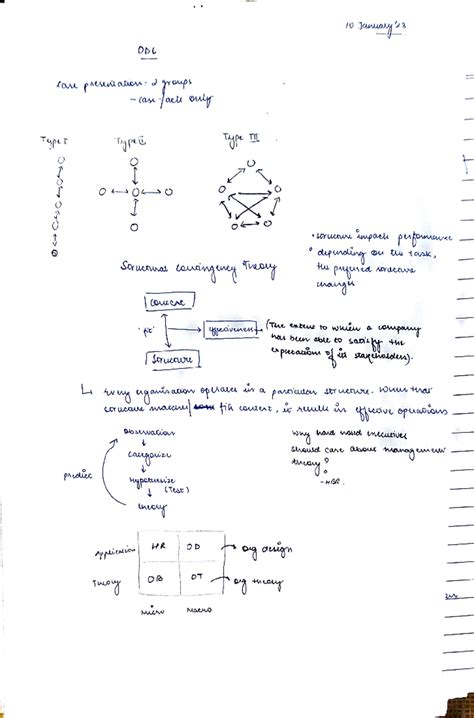 10 January '23
OD6
Case presentation - 2 groups
- case facts only
Type I Type II Type III
• structure impacts performance
• depending on the task,
the preferred structure
changes
Structural Contingency Theory
Context
'fit' → effectiveness (The extent to which a company
has been able to satisfy the
expectation of its stakeholders).
Structure
↳ Every organisation operates in a particular structure. When that
structure matches/ fits context, it results in effective operations
observation
categorize
predict
hypothesize
(Test)
theory
why hard nosed executives
should care about management
theory?
- HBR.
Application HR OD → org design
Theory OB OT → org theory
Micro Macro